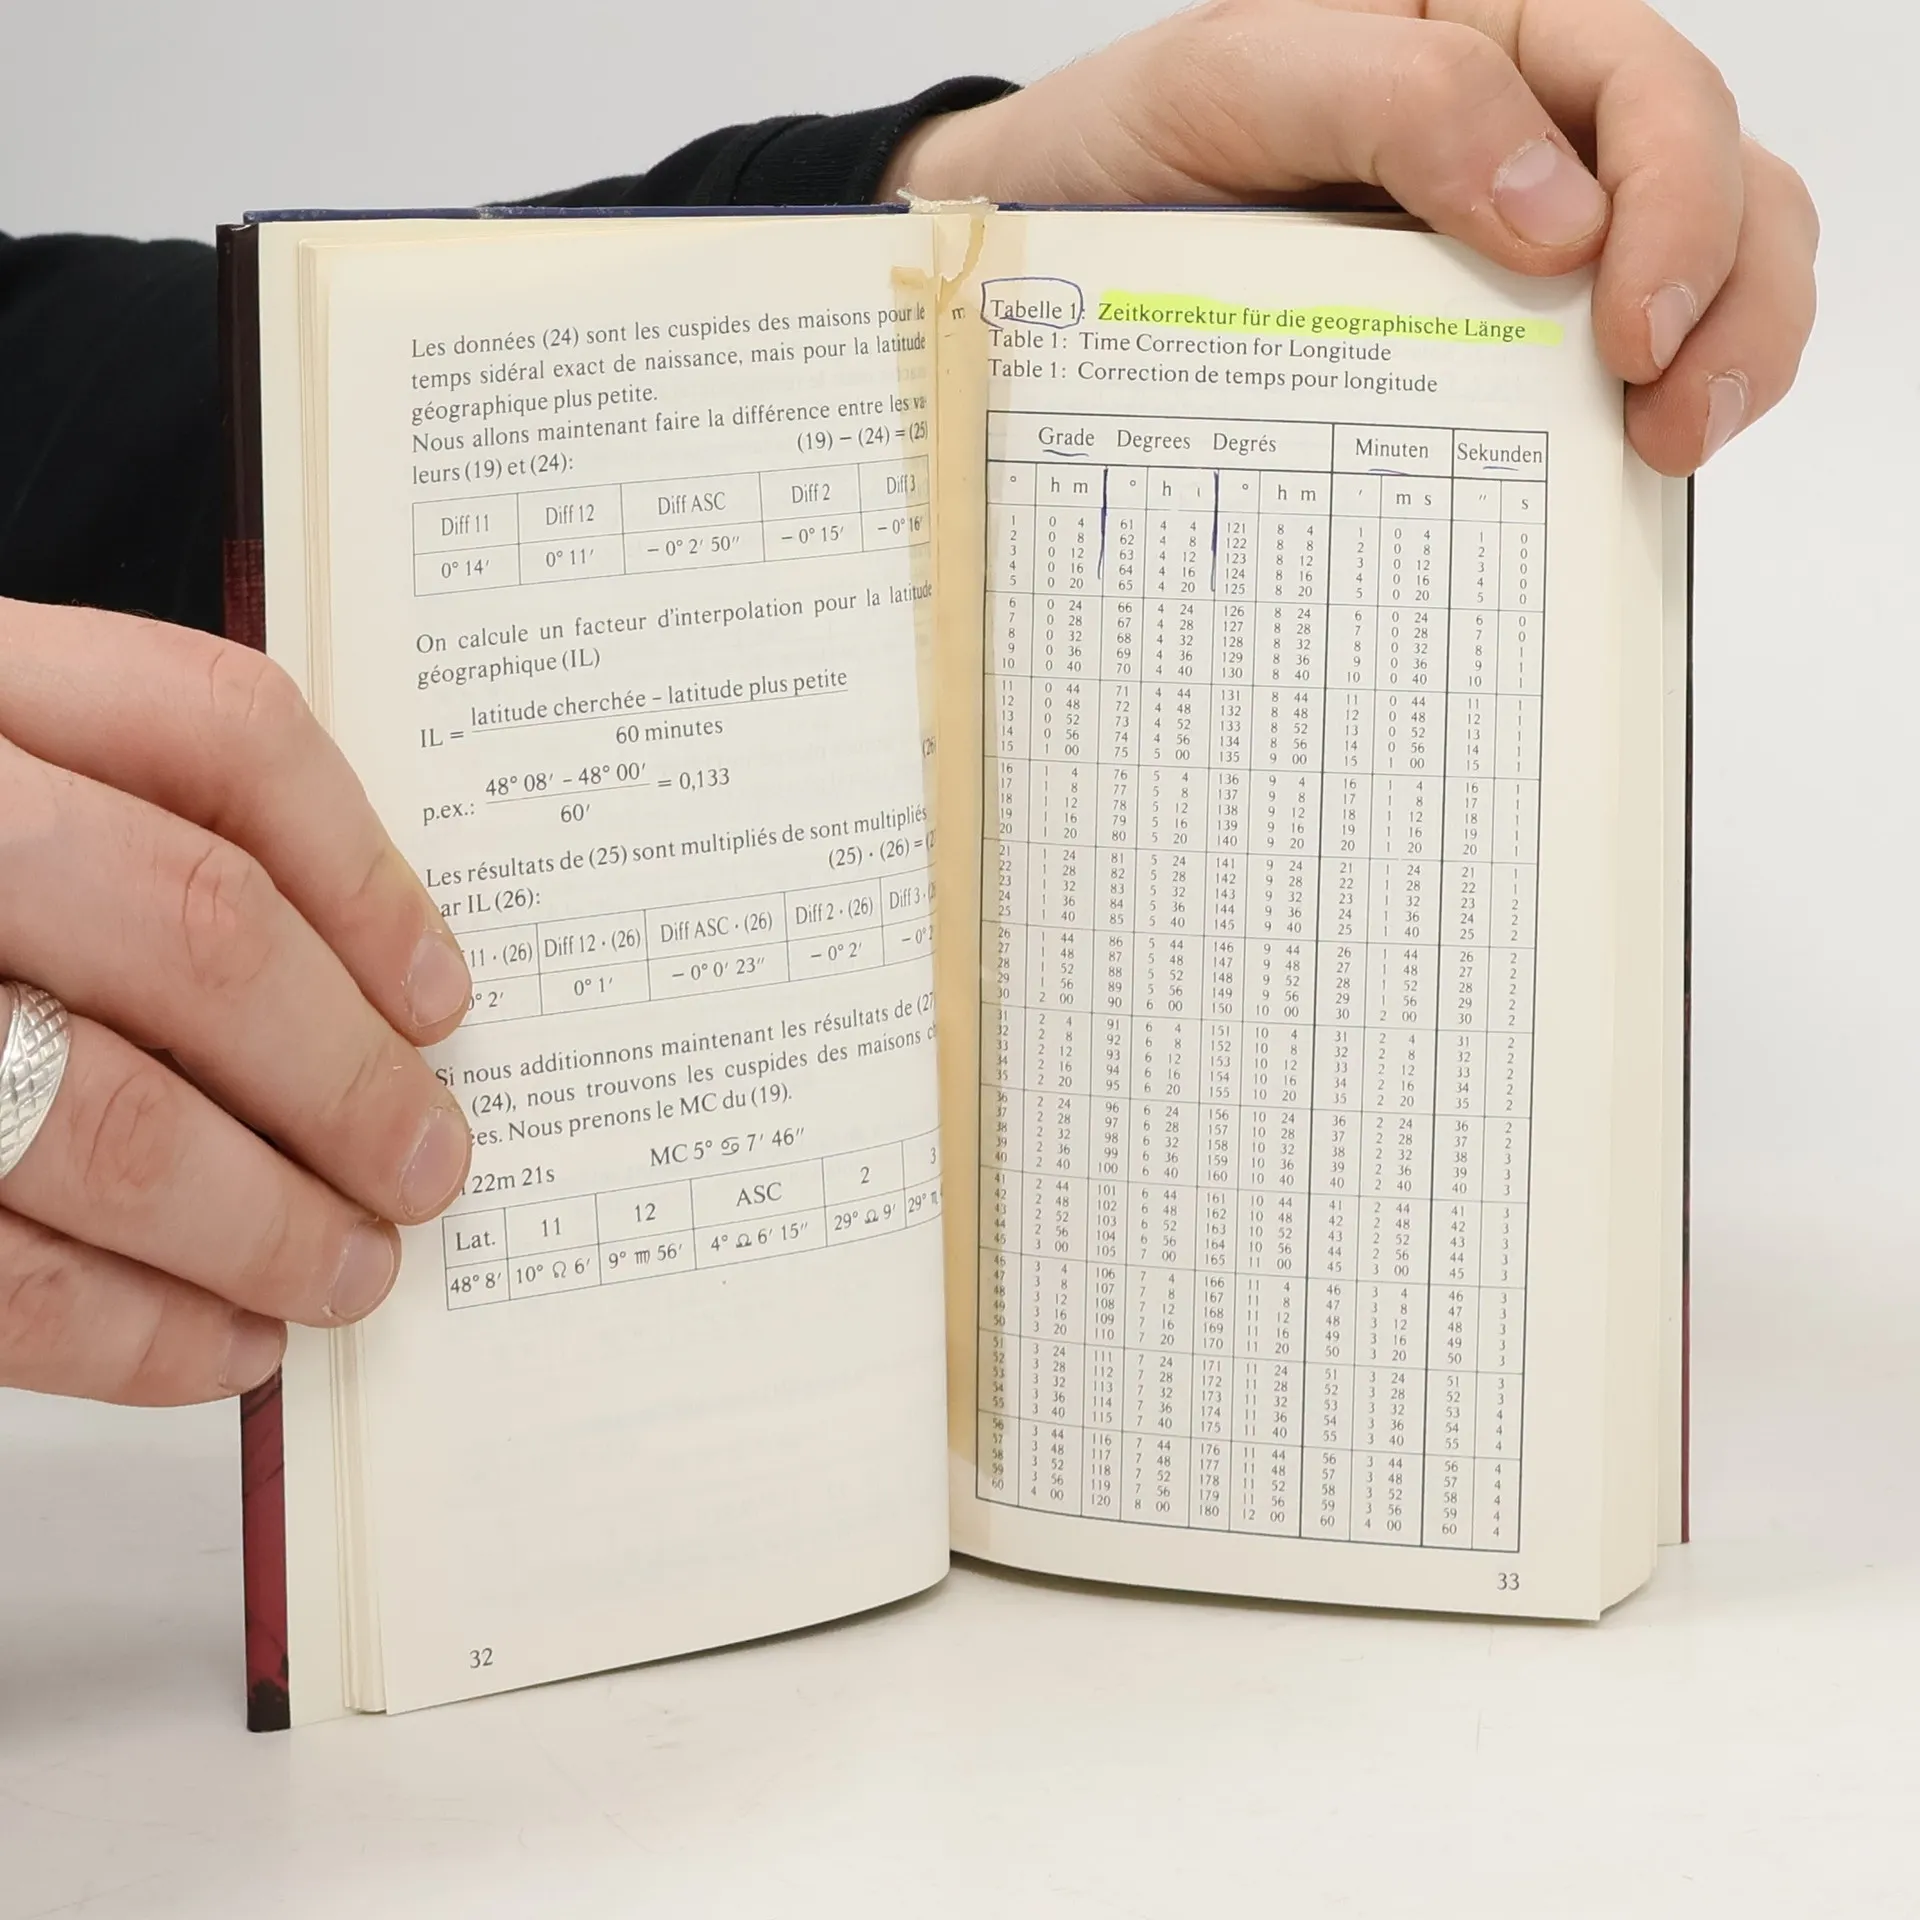 Les données (24) sont les cuspides des maisons pour le
temps sidéral exact de naissance, mais pour la latitude
géographique plus petite.
Nous allons maintenant faire la différence entre les va-
leurs (19) et (24): (19) – (24) = (25)
Diff 11 Diff 12 Diff ASC Diff 2 Diff 3
0° 14′ 0° 11′ – 0° 2′ 50″ – 0° 15′ – 0° 16′
On calcule un facteur d'interpolation pour la latitude
géographique (IL)
IL = latitude cherchée – latitude plus petite
60 minutes
(26)
p.ex.: 48° 08′ – 48° 00′ = 0,133
60′
Les résultats de (25) sont multipliés de sont multipliés
ar IL (26): (25) · (26) =
11 · (26) Diff 12 · (26) Diff ASC · (26) Diff 2 · (26) Diff 3 ·
° 2′ 0° 1′ – 0° 0′ 23″ – 0° 2′ – 0° 2
Si nous additionnons maintenant les résultats de (27
(24), nous trouvons les cuspides des maisons c
ées. Nous prenons le MC du (19).
22m 21s MC 5° ♋ 7′ 46″
Lat. 11 12 ASC 2 3
48° 8′ 10° ♌ 6′ 9° ♍ 56′ 4° ♎ 6′ 15″ 29° ♎ 9′ 29° ♏
32
m
Tabelle 1: Zeitkorrektur für die geographische Länge
Table 1: Time Correction for Longitude
Table 1: Correction de temps pour longitude
Grade Degrees Degrés Minuten Sekunden
° h m ° h ° h m ′ m s ″ s
1 0 4 61 4 4 121 8 4 1 0 4 1 0
2 0 8 62 4 8 122 8 8 2 0 8 2 0
3 0 12 63 4 12 123 8 12 3 0 12 3 0
4 0 16 64 4 16 124 8 16 4 0 16 4 0
5 0 20 65 4 20 125 8 20 5 0 20 5 0
6 0 24 66 4 24 126 8 24 6 0 24 6 0
7 0 28 67 4 28 127 8 28 7 0 28 7 0
8 0 32 68 4 32 128 8 32 8 0 32 8 1
9 0 36 69 4 36 129 8 36 9 0 36 9 1
10 0 40 70 4 40 130 8 40 10 0 40 10 1
11 0 44 71 4 44 131 8 44 11 0 44 11 1
12 0 48 72 4 48 132 8 48 12 0 48 12 1
13 0 52 73 4 52 133 8 52 13 0 52 13 1
14 0 56 74 4 56 134 8 56 14 0 56 14 1
15 1 00 75 5 00 135 9 00 15 1 00 15 1
16 1 4 76 5 4 136 9 4 16 1 4 16 1
17 1 8 77 5 8 137 9 8 17 1 8 17 1
18 1 12 78 5 12 138 9 12 18 1 12 18 1
19 1 16 79 5 16 139 9 16 19 1 16 19 1
20 1 20 80 5 20 140 9 20 20 1 20 20 1
21 1 24 81 5 24 141 9 24 21 1 24 21 1
22 1 28 82 5 28 142 9 28 22 1 28 22 1
23 1 32 83 5 32 143 9 32 23 1 32 23 2
24 1 36 84 5 36 144 9 36 24 1 36 24 2
25 1 40 85 5 40 145 9 40 25 1 40 25 2
26 1 44 86 5 44 146 9 44 26 1 44 26 2
27 1 48 87 5 48 147 9 48 27 1 48 27 2
28 1 52 88 5 52 148 9 52 28 1 52 28 2
29 1 56 89 5 56 149 9 56 29 1 56 29 2
30 2 00 90 6 00 150 10 00 30 2 00 30 2
31 2 4 91 6 4 151 10 4 31 2 4 31 2
32 2 8 92 6 8 152 10 8 32 2 8 32 2
33 2 12 93 6 12 153 10 12 33 2 12 33 2
34 2 16 94 6 16 154 10 16 34 2 16 34 2
35 2 20 95 6 20 155 10 20 35 2 20 35 2
36 2 24 96 6 24 156 10 24 36 2 24 36 2
37 2 28 97 6 28 157 10 28 37 2 28 37 2
38 2 32 98 6 32 158 10 32 38 2 32 38 3
39 2 36 99 6 36 159 10 36 39 2 36 39 3
40 2 40 100 6 40 160 10 40 40 2 40 40 3
41 2 44 101 6 44 161 10 44 41 2 44 41 3
42 2 48 102 6 48 162 10 48 42 2 48 42 3
43 2 52 103 6 52 163 10 52 43 2 52 43 3
44 2 56 104 6 56 164 10 56 44 2 56 44 3
45 3 00 105 7 00 165 11 00 45 3 00 45 3
46 3 4 106 7 4 166 11 4 46 3 4 46 3
47 3 8 107 7 8 167 11 8 47 3 8 47 3
48 3 12 108 7 12 168 11 12 48 3 12 48 3
49 3 16 109 7 16 169 11 16 49 3 16 49 3
50 3 20 110 7 20 170 11 20 50 3 20 50 3
51 3 24 111 7 24 171 11 24 51 3 24 51 3
52 3 28 112 7 28 172 11 28 52 3 28 52 3
53 3 32 113 7 32 173 11 32 53 3 32 53 4
54 3 36 114 7 36 174 11 36 54 3 36 54 4
55 3 40 115 7 40 175 11 40 55 3 40 55 4
56 3 44 116 7 44 176 11 44 56 3 44 56 4
57 3 48 117 7 48 177 11 48 57 3 48 57 4
58 3 52 118 7 52 178 11 52 58 3 52 58 4
59 3 56 119 7 56 179 11 56 59 3 56 59 4
60 4 00 120 8 00 180 12 00 60 4 00 60 4
33